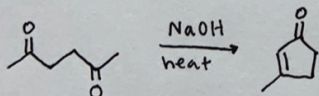 O
NaOH
O
heat
O